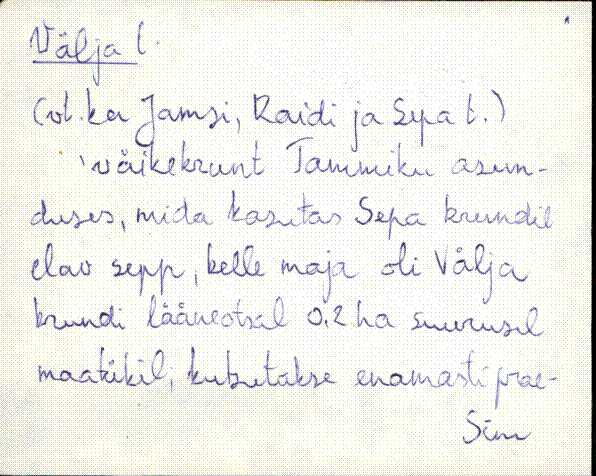 Välja t.
(vt. ka Jamsi, Raidi ja Sepa t.)
väikekrunt Tammiku asun-
duses, mida kasutas Sepa krundil
elav sepp, kelle maja oli Välja
krundi lääneotsal 0.2 ha suurusel
maatükil; kutsutakse enamasti prae-